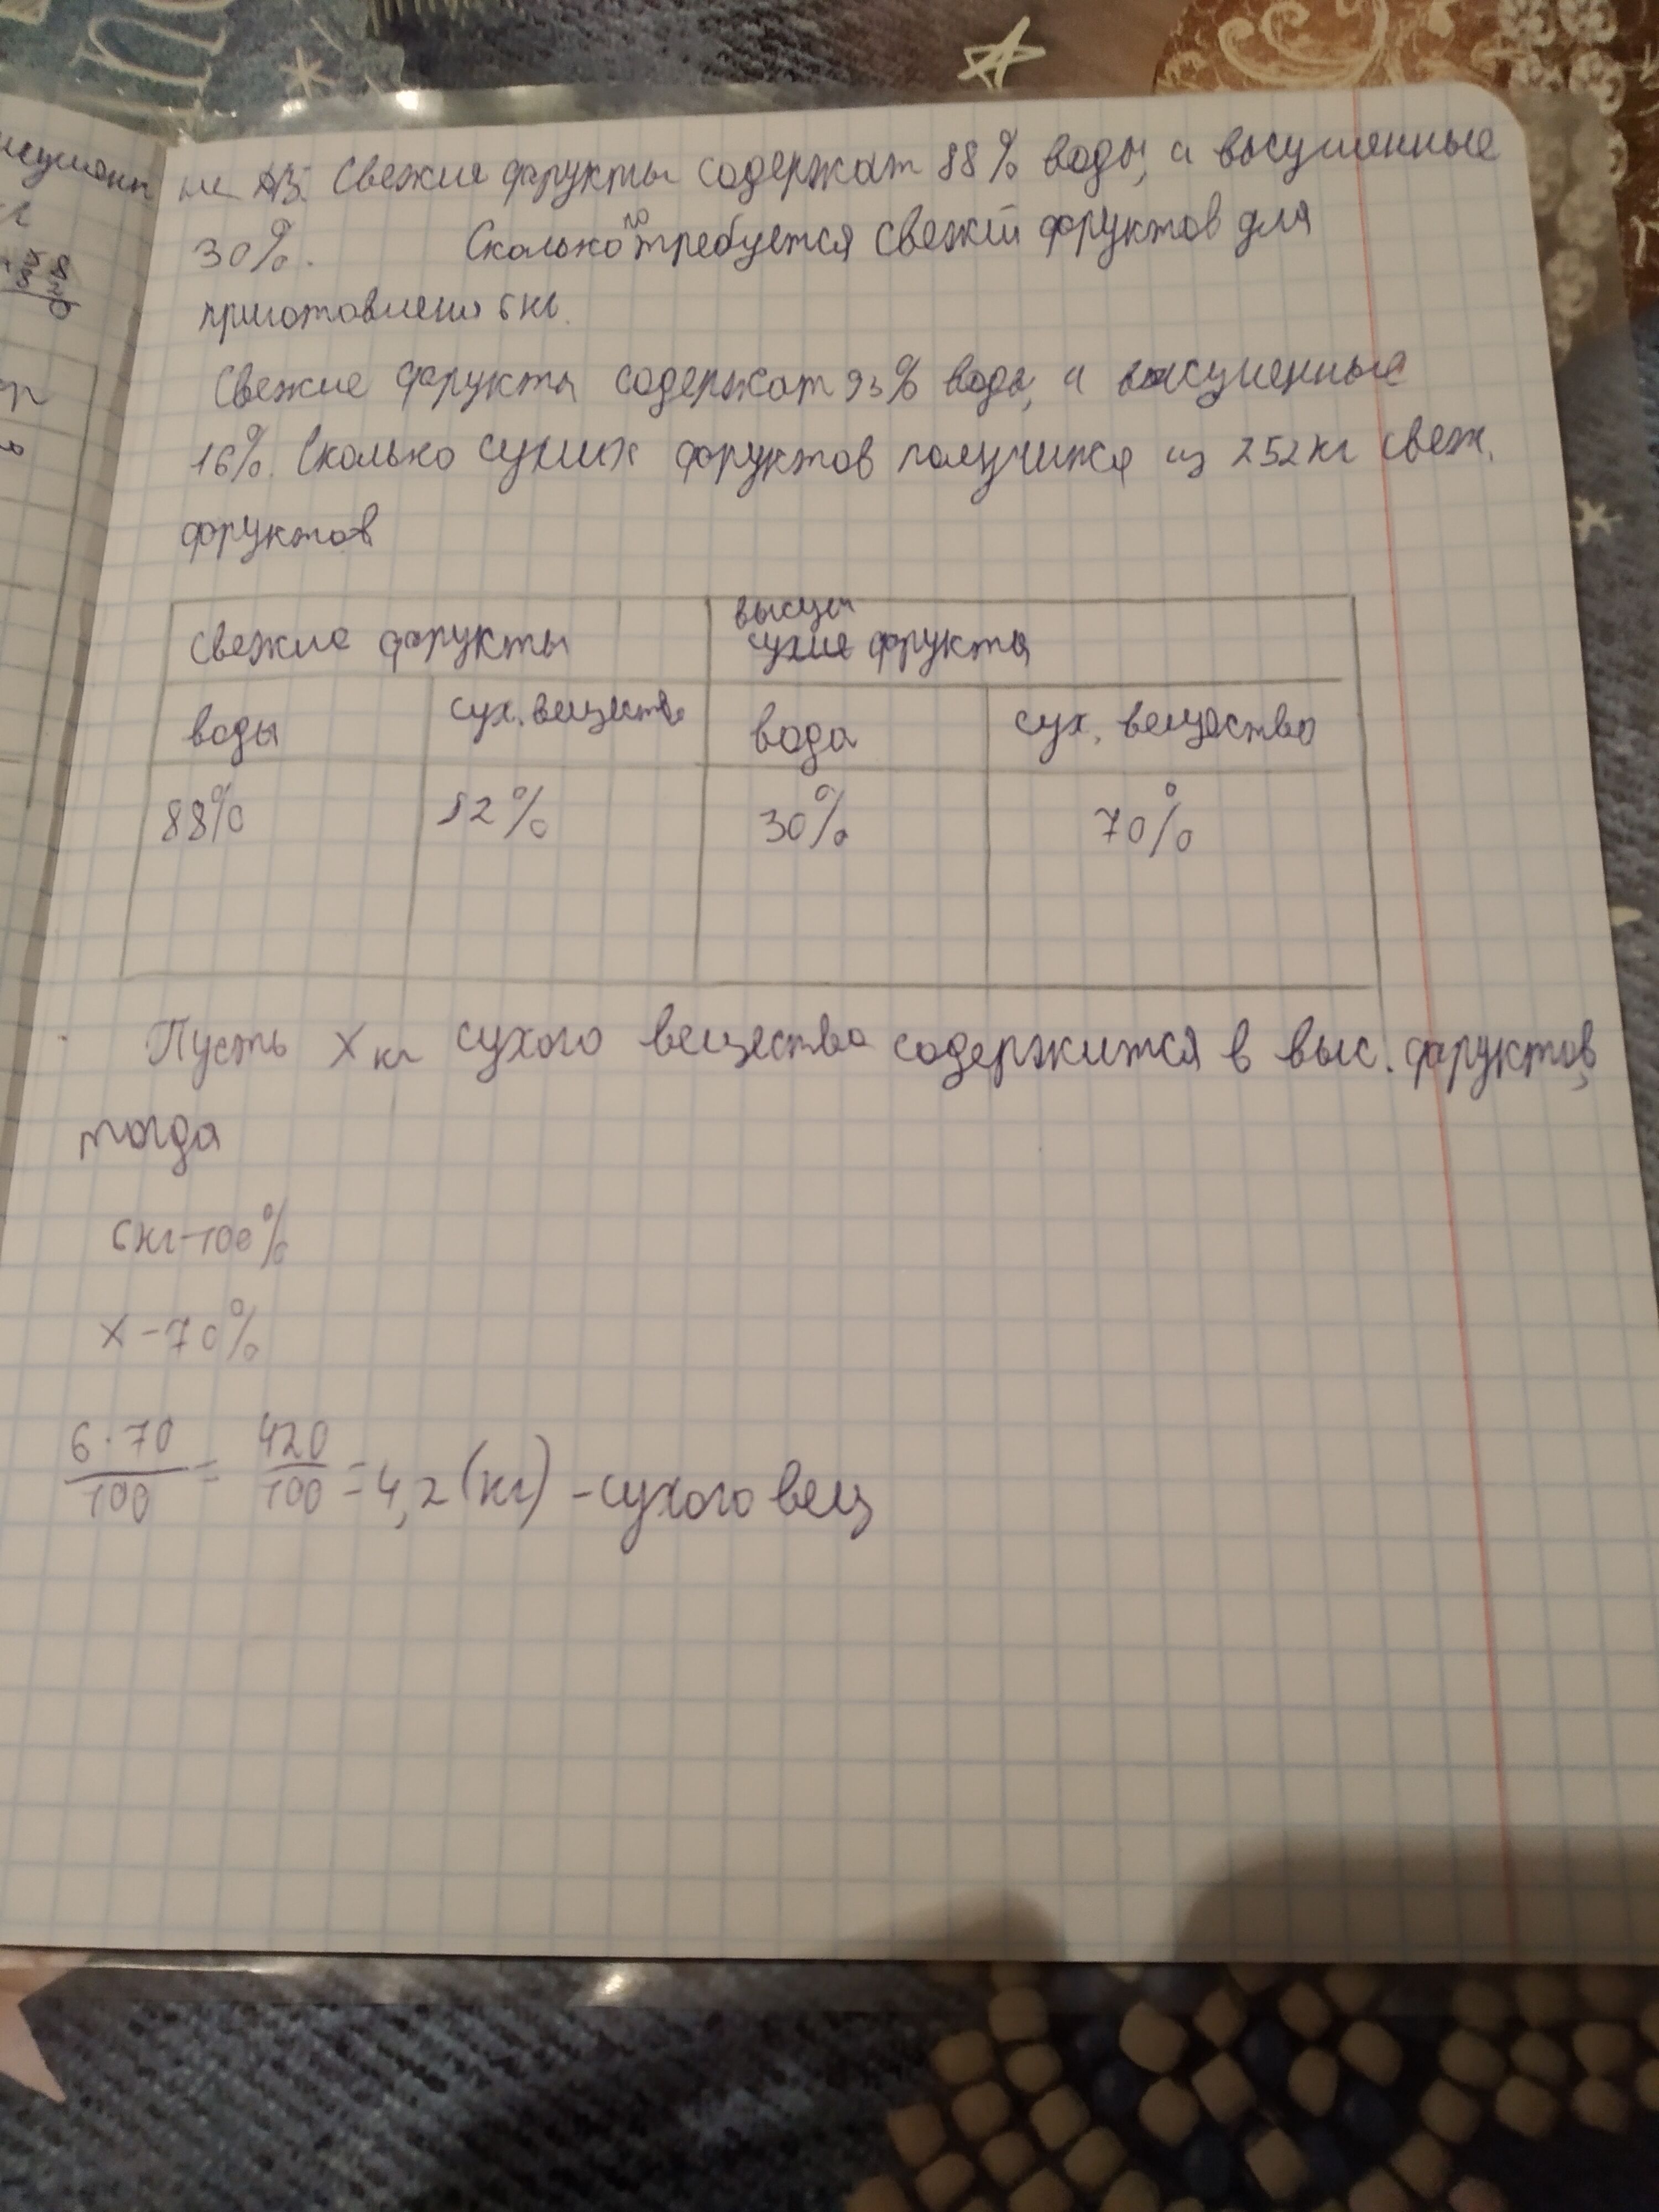 на АВ. Свежие фрукты содержат 88% воды, а высушенные
30%. Сколько потребуется свежий фруктов для
приготовлени 6 кг.
Свежие фрукты содержат 93% воды, а высушенные
16%. Сколько сухих фруктов получится из 252 кг свеж.
фруктов
свежие фрукты
высуш
сухие фрукты
воды
сух. веществ
вода
сух. вещество
88%
12%
30%
70%
Пусть х кг сухого вещества содержится в выс. фруктов,
тогда
6кг-100%
х-70%
6·70/100 = 420/100 = 4,2 (кг) - сухого вещ